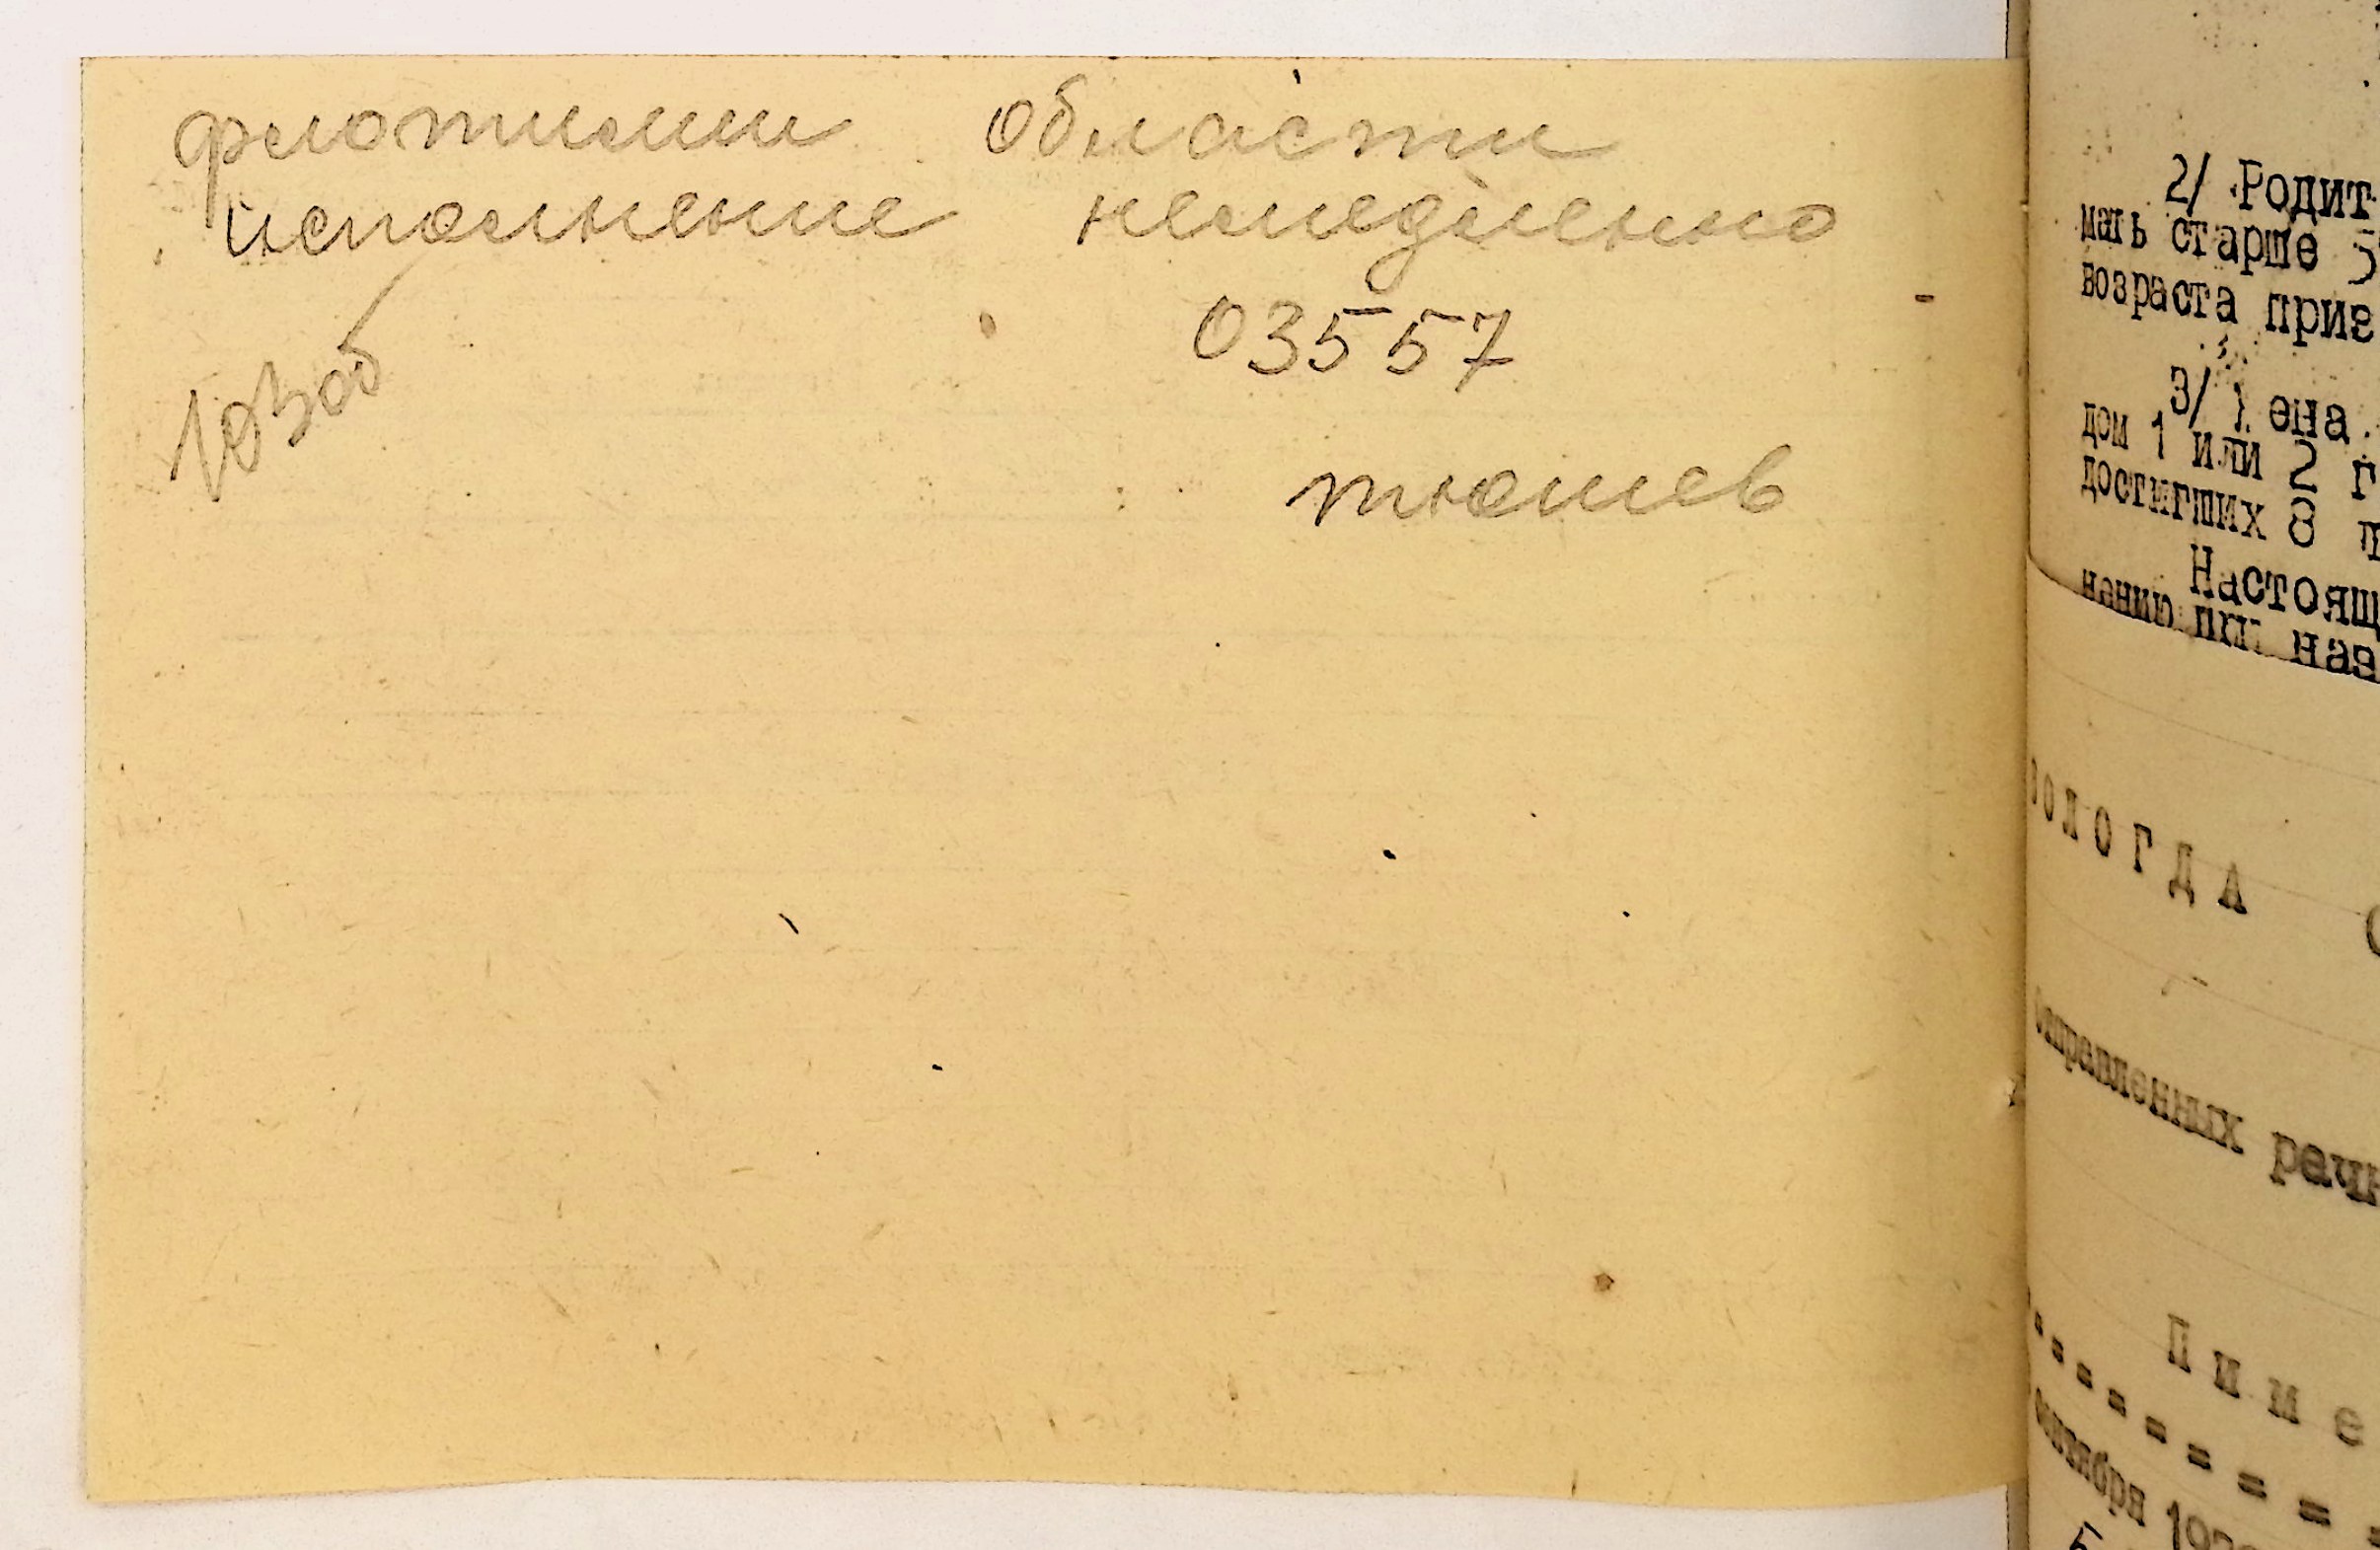 флотилии области
исполнение немедленно
03557
тюшев
2/ Родит
мать старше 5
возраста приз
3/ Жена
дом 1 или 2 г
достигших 8
Настоящ
нению наз
ВОЛОГДА
отправленных речн
Пиме
- = = = = = = =
октября